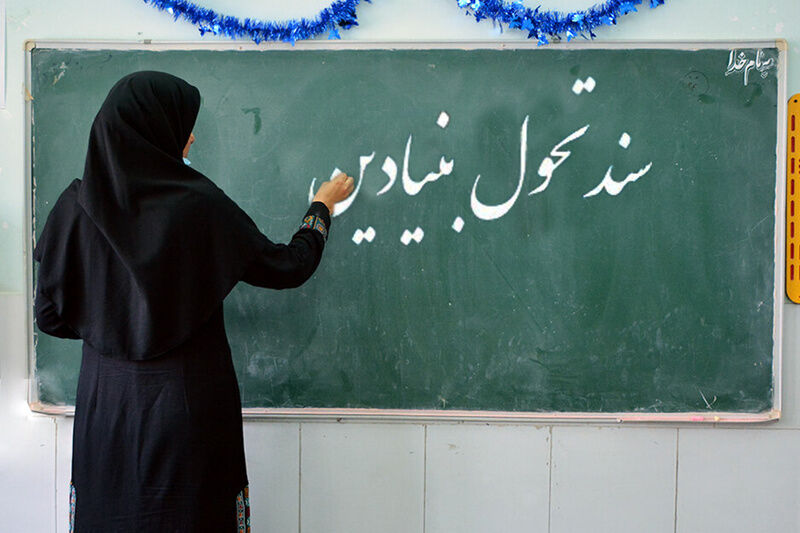 به نام خدا
سند تحول بنیادین